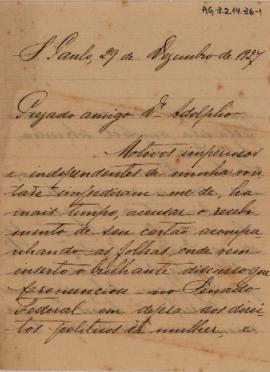 AG.3.2.14.36-1
S. Paulo, 29 de Dezembro de 1927
Prezado amigo Dr. Adolpho
Motivos imperiosos
e independentes de minha von
tade impediram me de, ha
mais tempo, accusar o recebi
mento de seu cartão acompa
nhando as folhas, onde vem
inserto o brilhante discurso que
pronunciou no Senado
Federal em defesa dos direi
tos politicos da mulher, e